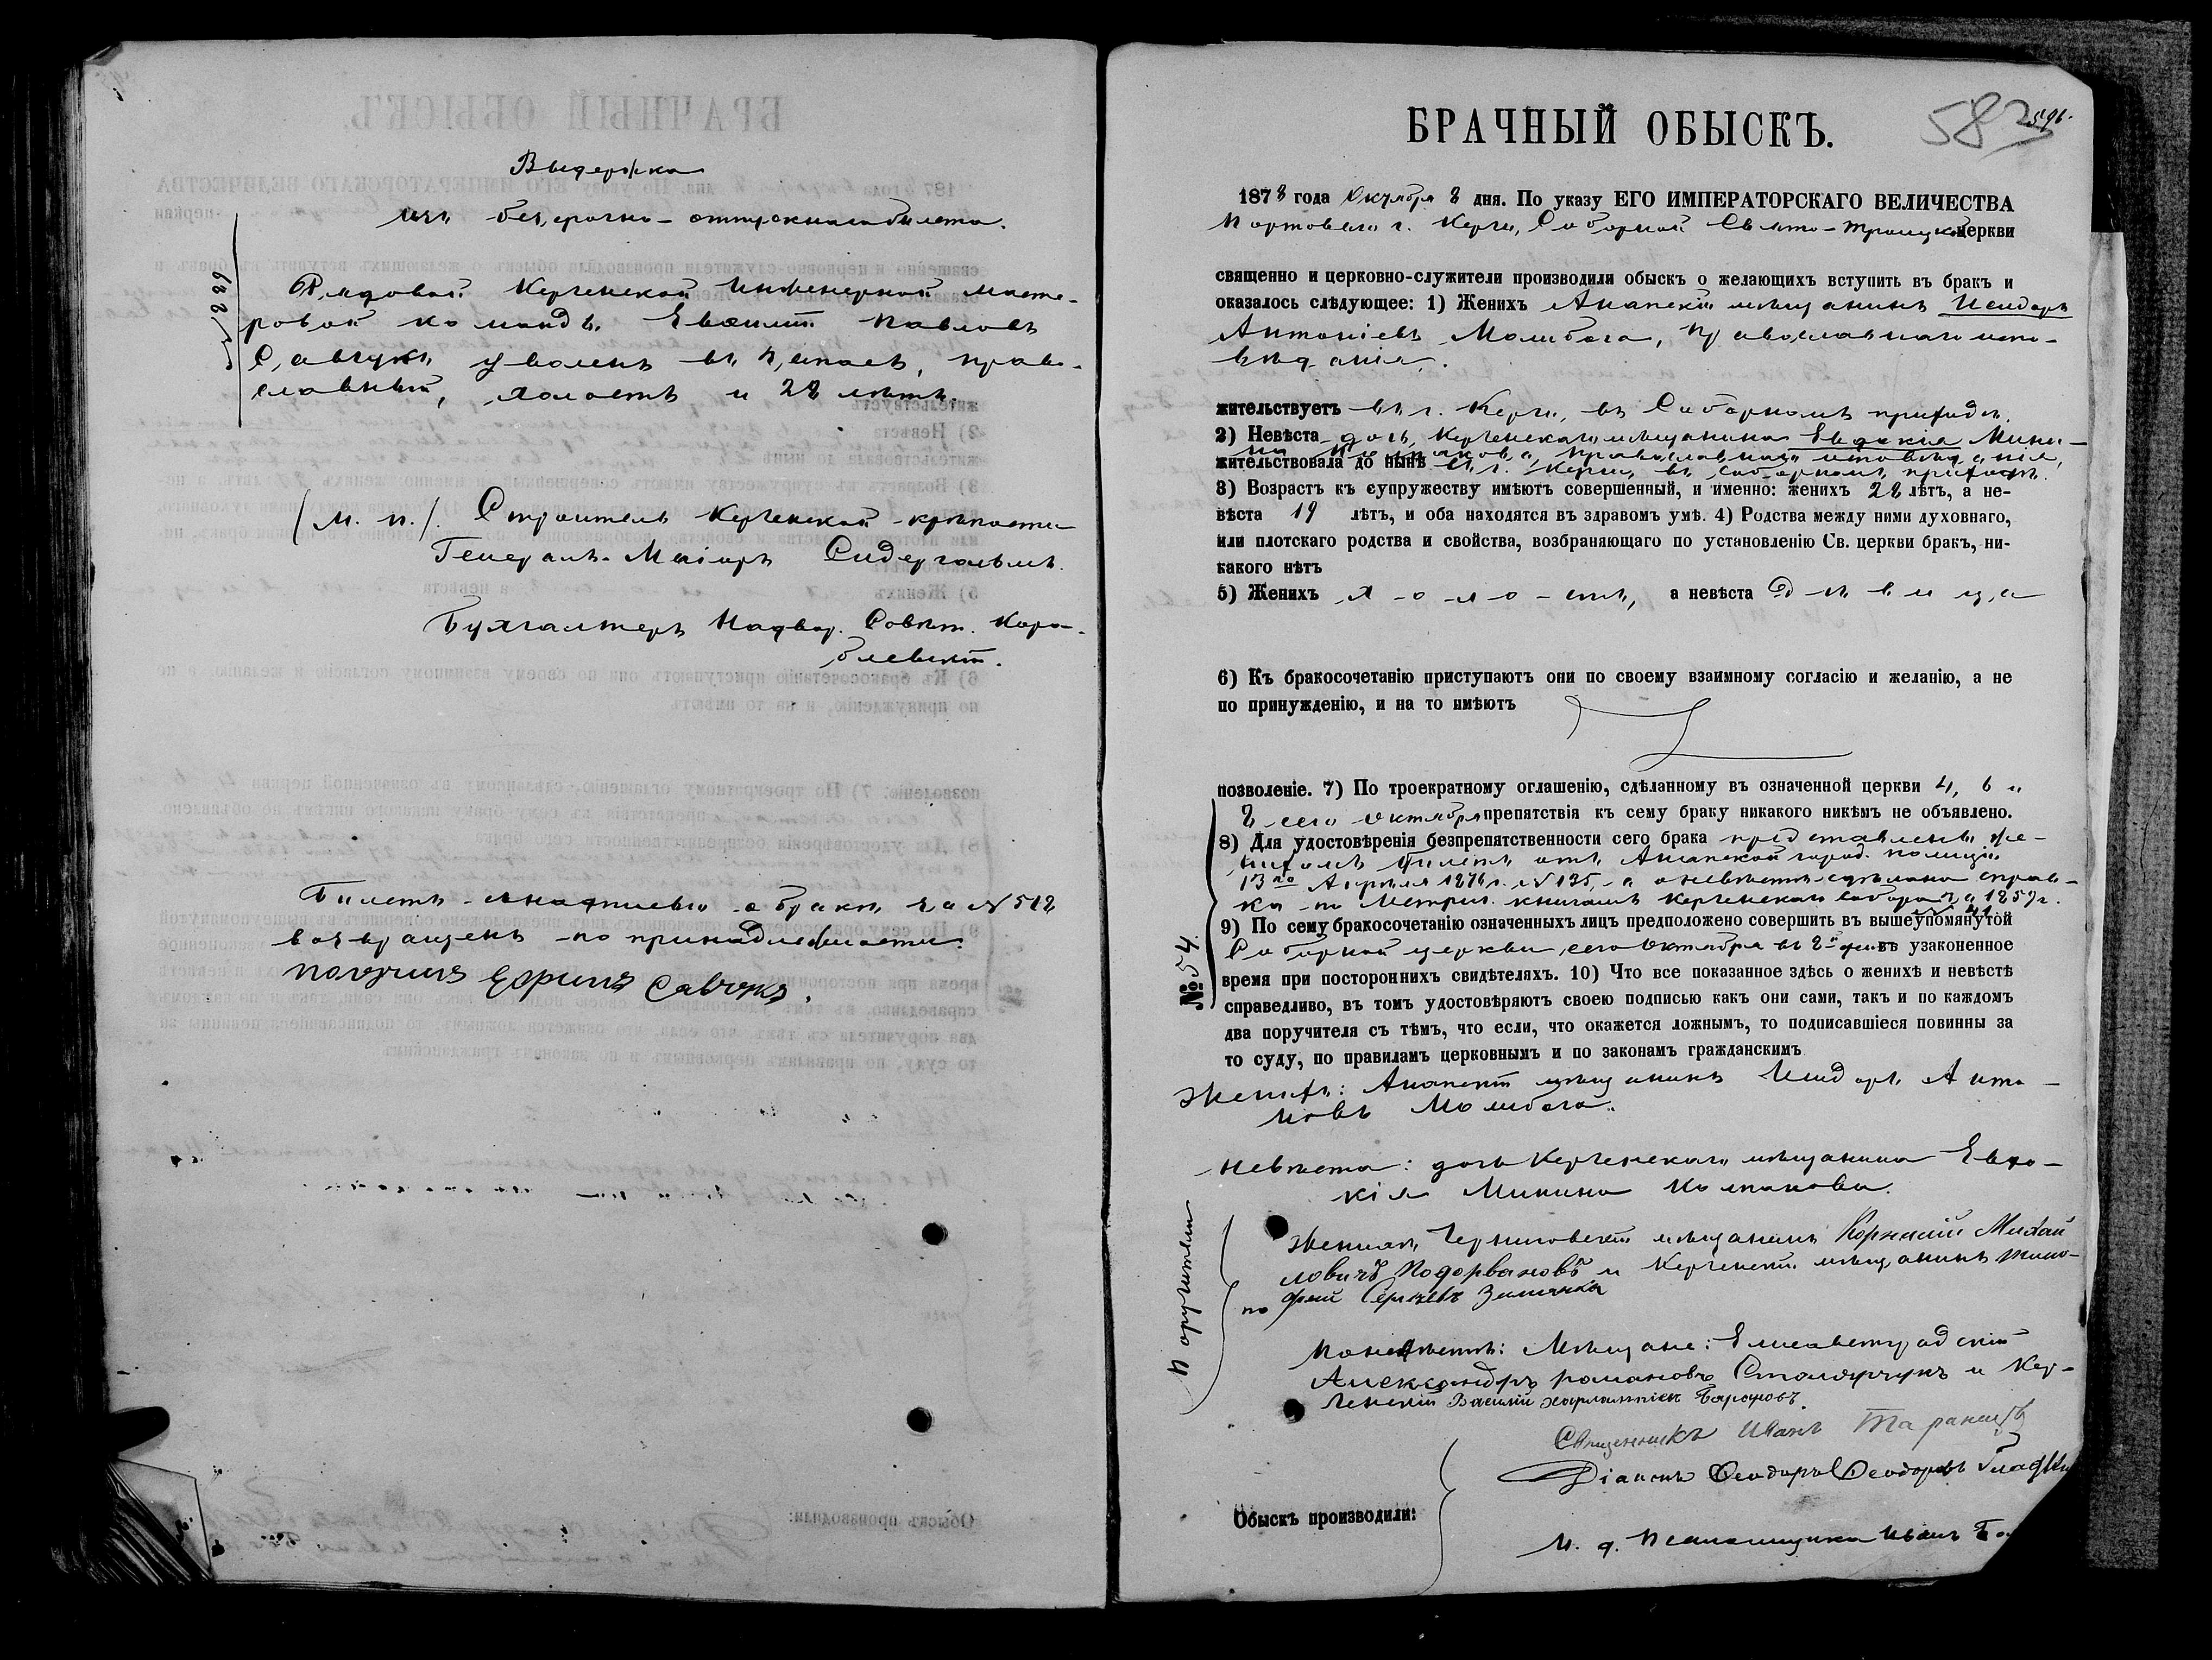 Выдержка
изъ безсрочно-отпускнаго билета.
Рядовой Керченской Инженерной масте-
ровой команды
Савчукъ уволенъ въ запасъ, право-
славный, холостъ и 28 лѣтъ.
(М. п.). Строитель Керченской крѣпости
Генералъ-Маіоръ
Бухгалтеръ Надвор. Совѣт. Кора-
блевскій.
Билетъ съ надписью о бракѣ за № 512
возвращенъ по принадлежности.
получилъ Савчукъ.
БРАЧНЫЙ ОБЫСКЪ.
583
1878 года Октября 8 дня. По указу ЕГО ИМПЕРАТОРСКАГО ВЕЛИЧЕСТВА
Портоваго г. Керчи, Соборной Свято-Троицкой церкви
священно и церковно-служители производили обыскъ о желающихъ вступить въ бракъ и
оказалось слѣдующее: 1) Женихъ Анапскій мѣщанинъ Исидоръ
Антоніевъ Молибога, православнаго испо-
вѣданія,
жительствуетъ въ г. Керчи, въ Соборномъ приходѣ.
2) Невѣста дочь Керченскаго мѣщанина Евдокія Мини-
на Колпакова, православнаго исповѣданія,
жительствовала до нынѣ въ г. Керчи, въ соборномъ приходѣ.
3) Возрастъ къ супружеству имѣютъ совершенный, и именно: женихъ 28 лѣтъ, а не-
вѣста 19 лѣтъ, и оба находятся въ здравомъ умѣ. 4) Родства между ними духовнаго,
или плотскаго родства и свойства, возбраняющаго по установленію Св. церкви бракъ, ни-
какого нѣтъ
5) Женихъ х-о-л-о-стъ, а невѣста д-ѣ-в-и-ц-а
6) Къ бракосочетанію приступаютъ они по своему взаимному согласію и желанію, а не
по принужденію, и на то имѣютъ
позволеніе. 7) По троекратному оглашенію, сдѣланному въ означенной церкви 4, 6 и
8 сего октября препятствія къ сему браку никакого никѣмъ не объявлено.
8) Для удостовѣренія безпрепятственности сего брака представленъ же-
нихомъ билетъ отъ Анапской город. полиціи
13го Апрѣля 1878 г. № 135, а о невѣстѣ сдѣлана справ-
ка по Метрич. книгамъ Керченскаго собора за 1859 г.
9) По сему бракосочетанію означенныхъ лицъ предположено совершить въ вышеупомянутой
Соборной церкви сего Октября въ 8й день въ узаконенное
№ 54.
время при постороннихъ свидѣтеляхъ. 10) Что все показанное здѣсь о женихѣ и невѣстѣ
справедливо, въ томъ удостовѣряютъ своею подписью какъ они сами, такъ и по каждомъ
два поручителя съ тѣмъ, что если, что окажется ложнымъ, то подписавшіеся повинны за
то суду, по правиламъ церковнымъ и по законамъ гражданскимъ
Женихъ: Анапскій мѣщанинъ Исидоръ Анто-
новъ Молибога.
Невѣста: дочь Керченскаго мѣщанина Евдо-
кія Минина Колпакова.
Поручители
по
Женихѣ Черниговскій мѣщанинъ Корнилій Михай
ловичъ Подорвановъ и Керченскій мѣщанинъ Тимо-
фей Сергѣевъ
По невѣстѣ: Мѣщане: Елисаветградскій
Александръ Романовъ Столярчукъ и Кер-
ченскій Василій Харлампіевъ
Священникъ Иванъ
Діаконъ Ѳеодоръ Ѳеодоровъ
Обыскъ производили:
И. д. Псаломщика Иванъ